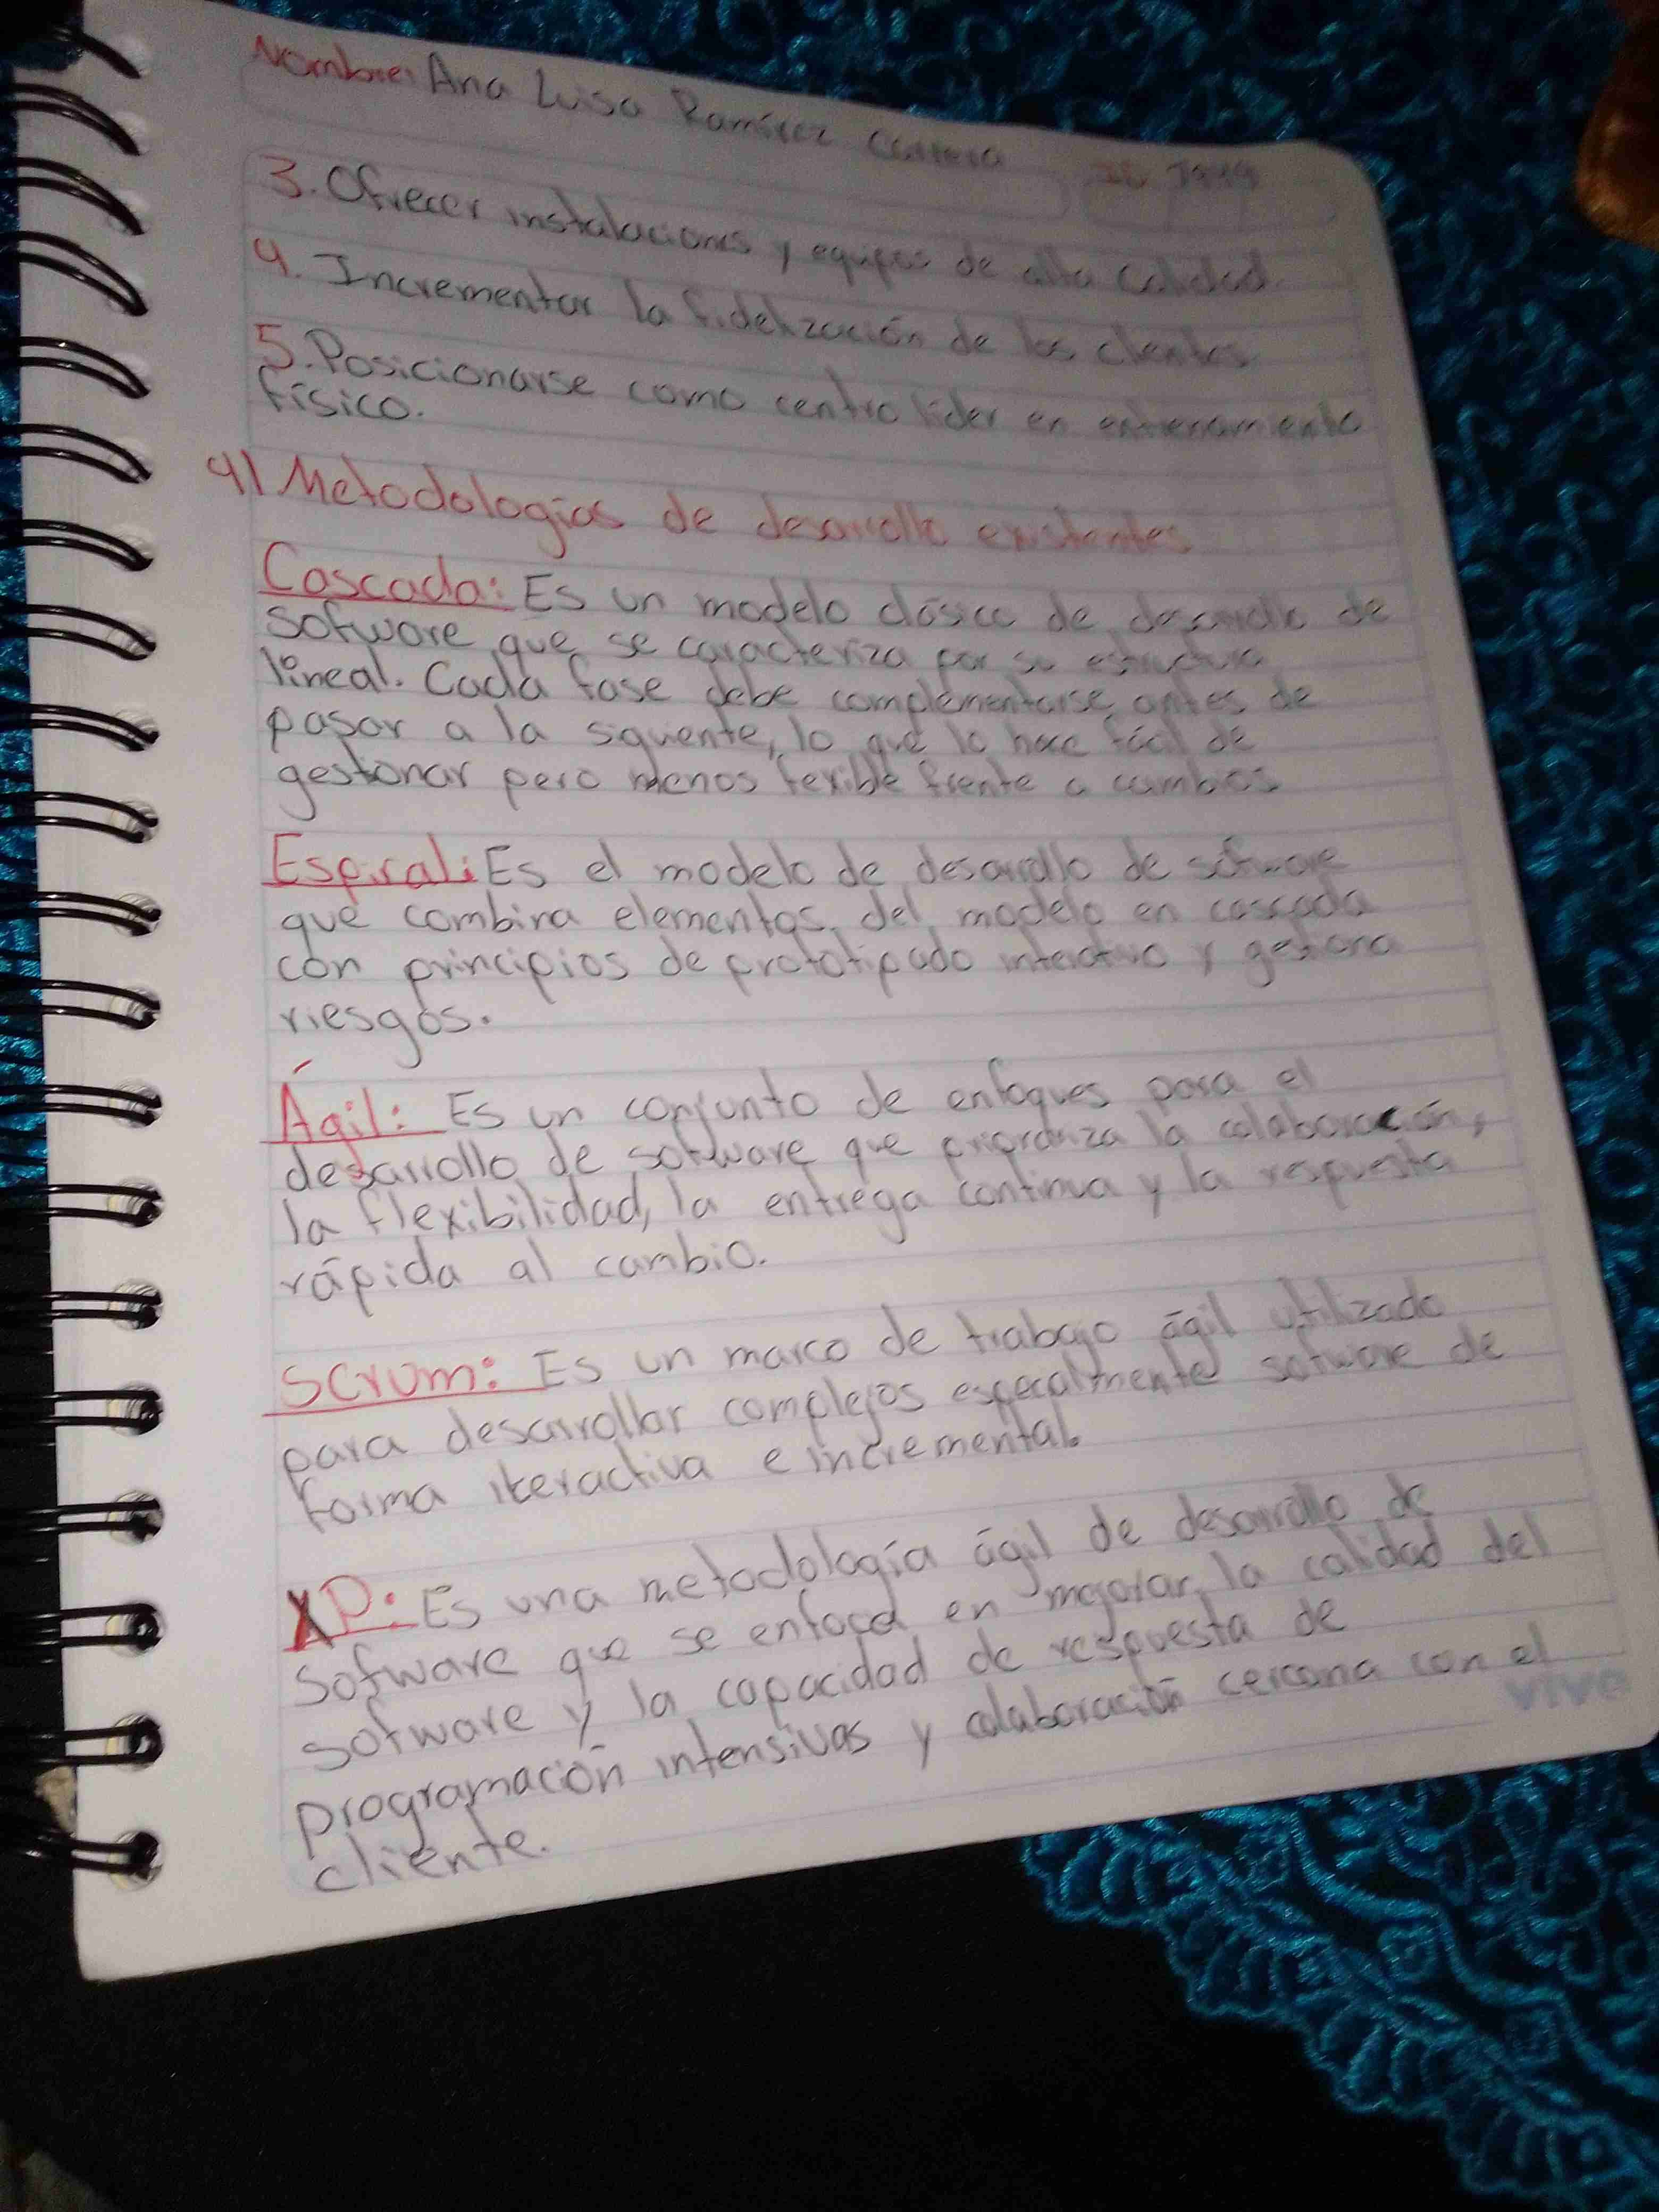 Nombre: Ana Luisa Ramírez
3. Ofrecer instalaciones y equipos de alta calidad.
4. Incrementar la fidelización de los clientes
5. Posicionarse como centro líder en entrenamiento
físico.
4) Metodologías de desarrollo existentes
Cascada: Es un modelo clásico de desarrollo de
Sofware que se caracteriza por su estructura
lineal. Cada fase debe complementarse antes de
pasar a la siguente, lo que lo hace fácil de
gestonar pero menos fexible frente a cambios
Espiral: Es el modelo de desarrollo de sofware
que combina elementos del modelo en cascada
con principios de prototipado interactivo y gestiona
riesgos.
Ágil: Es un conjunto de enfoques para el
desarrollo de sofware que priorariza la colaboración,
la flexibilidad, la entrega continua y la respuesta
rápida al cambio.
SCrum: Es un marco de trabajo ágil utilizado
para desarrollar complejos especalmente sofware de
forma iteractiva e incremental.
XP: Es una metodología ágil de desarrollo de
Sofware que se enfoca en mejorar la calidad del
sofware y la capacidad de respuesta de
programación intensivas y colaboración cercana con el
cliente.
vivo